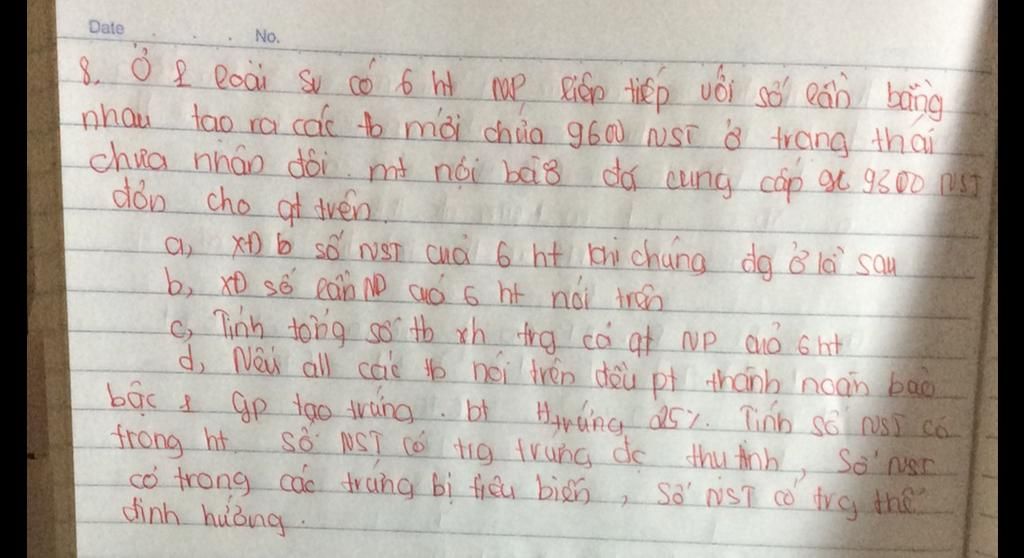 Date . . . No.
8. Ở 1 loài sv có 6 ht NP liên tiếp với số lần bằng
nhau tạo ra các tb mới chứa 9600 NST ở trạng thái
chưa nhân đôi. mt nội bào đã cung cấp 9300 NST
đơn cho qt trên.
a, XĐ b số NST của 6 ht khi chúng đg ở kì sau
b, XĐ số lần NP của 6 ht nói trên
c, Tính tổng số tb xh trg cả qt NP của 6 ht
d, Nếu all các tb nói trên đều pt thành noãn bào
bậc 1 gp tạo trứng. bt H trứng 25%. Tính số NST có
trong ht số NST có trg trứng đc thụ tinh, Số NST
có trong các trứng bị tiêu biến, Số NST có trg thể
định hướng.